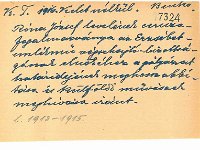 K. T. Kelet nélkül.
7324
Róna József levelének
fogalmazványa az Erzsébet-
emlékmű végrehajtó-bizottsá-
gának elnökéhez a pályázat
határidejének meghosszabbí-
tása és külföldi művészek
meghívása iránt.
l. 1913-1915.